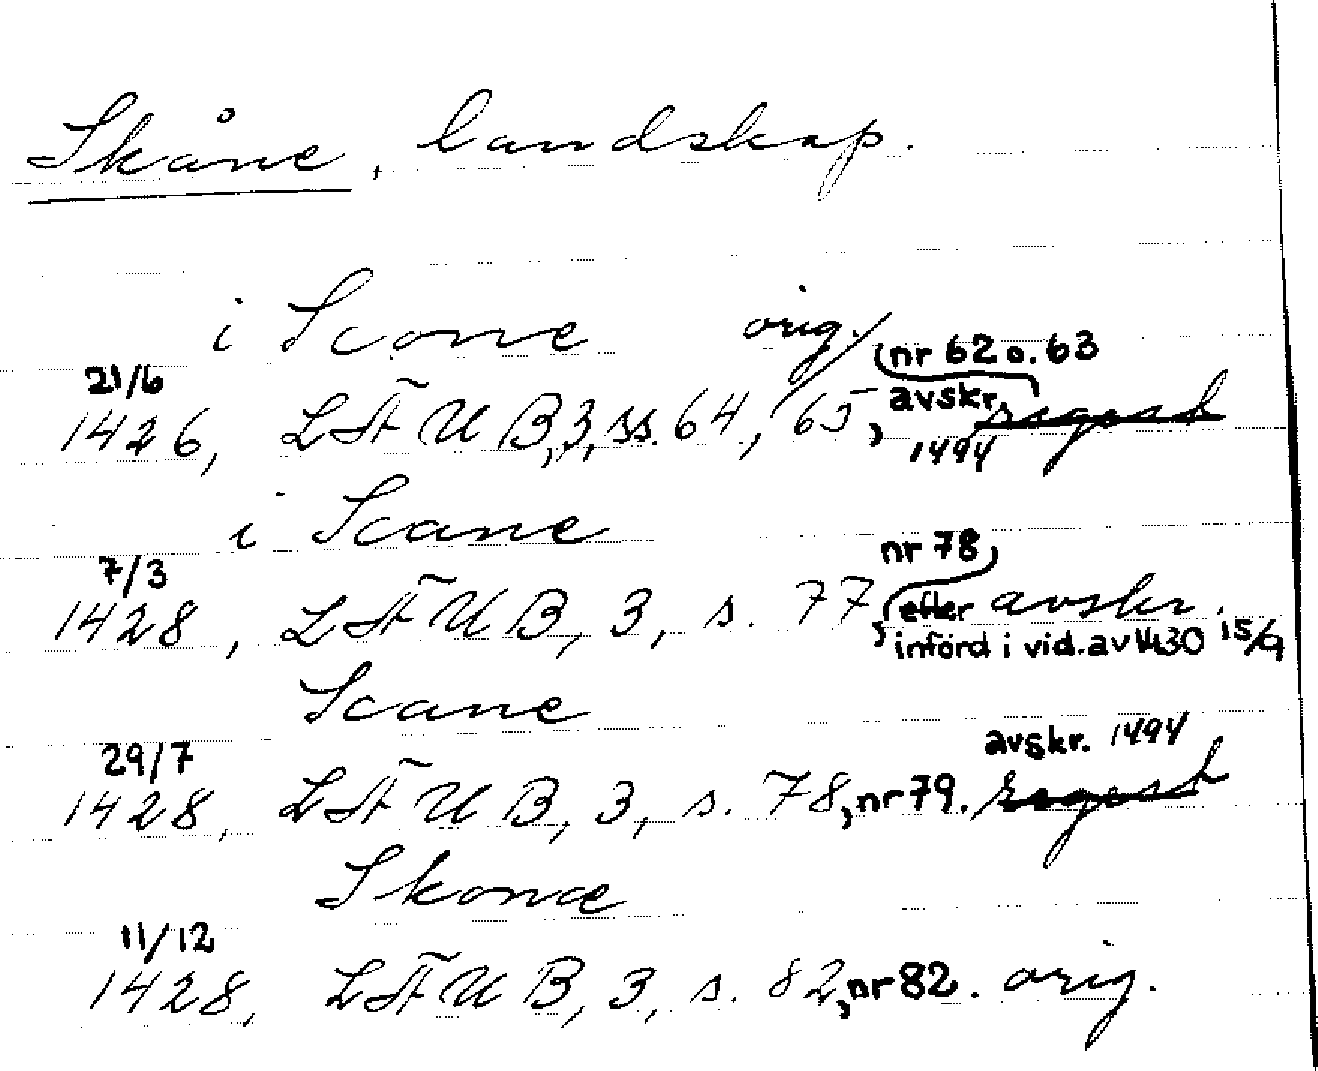 Skåne, landskap.
i Scone orig./ nr 62 o. 63
21/6
1426, LÄUB, 3, ss. 64, 65, avskr. regest
1494
i Scane
7/3 nr 78
1428, LÄUB, 3, s. 77, efter avskr.
införd i vid. av 1430 15/9
Scane
29/7 avskr. 1494
1428, LÄUB, 3, s. 78, nr 79. regest
Skonæ
11/12
1428, LÄUB, 3, s. 82, nr 82. orig.